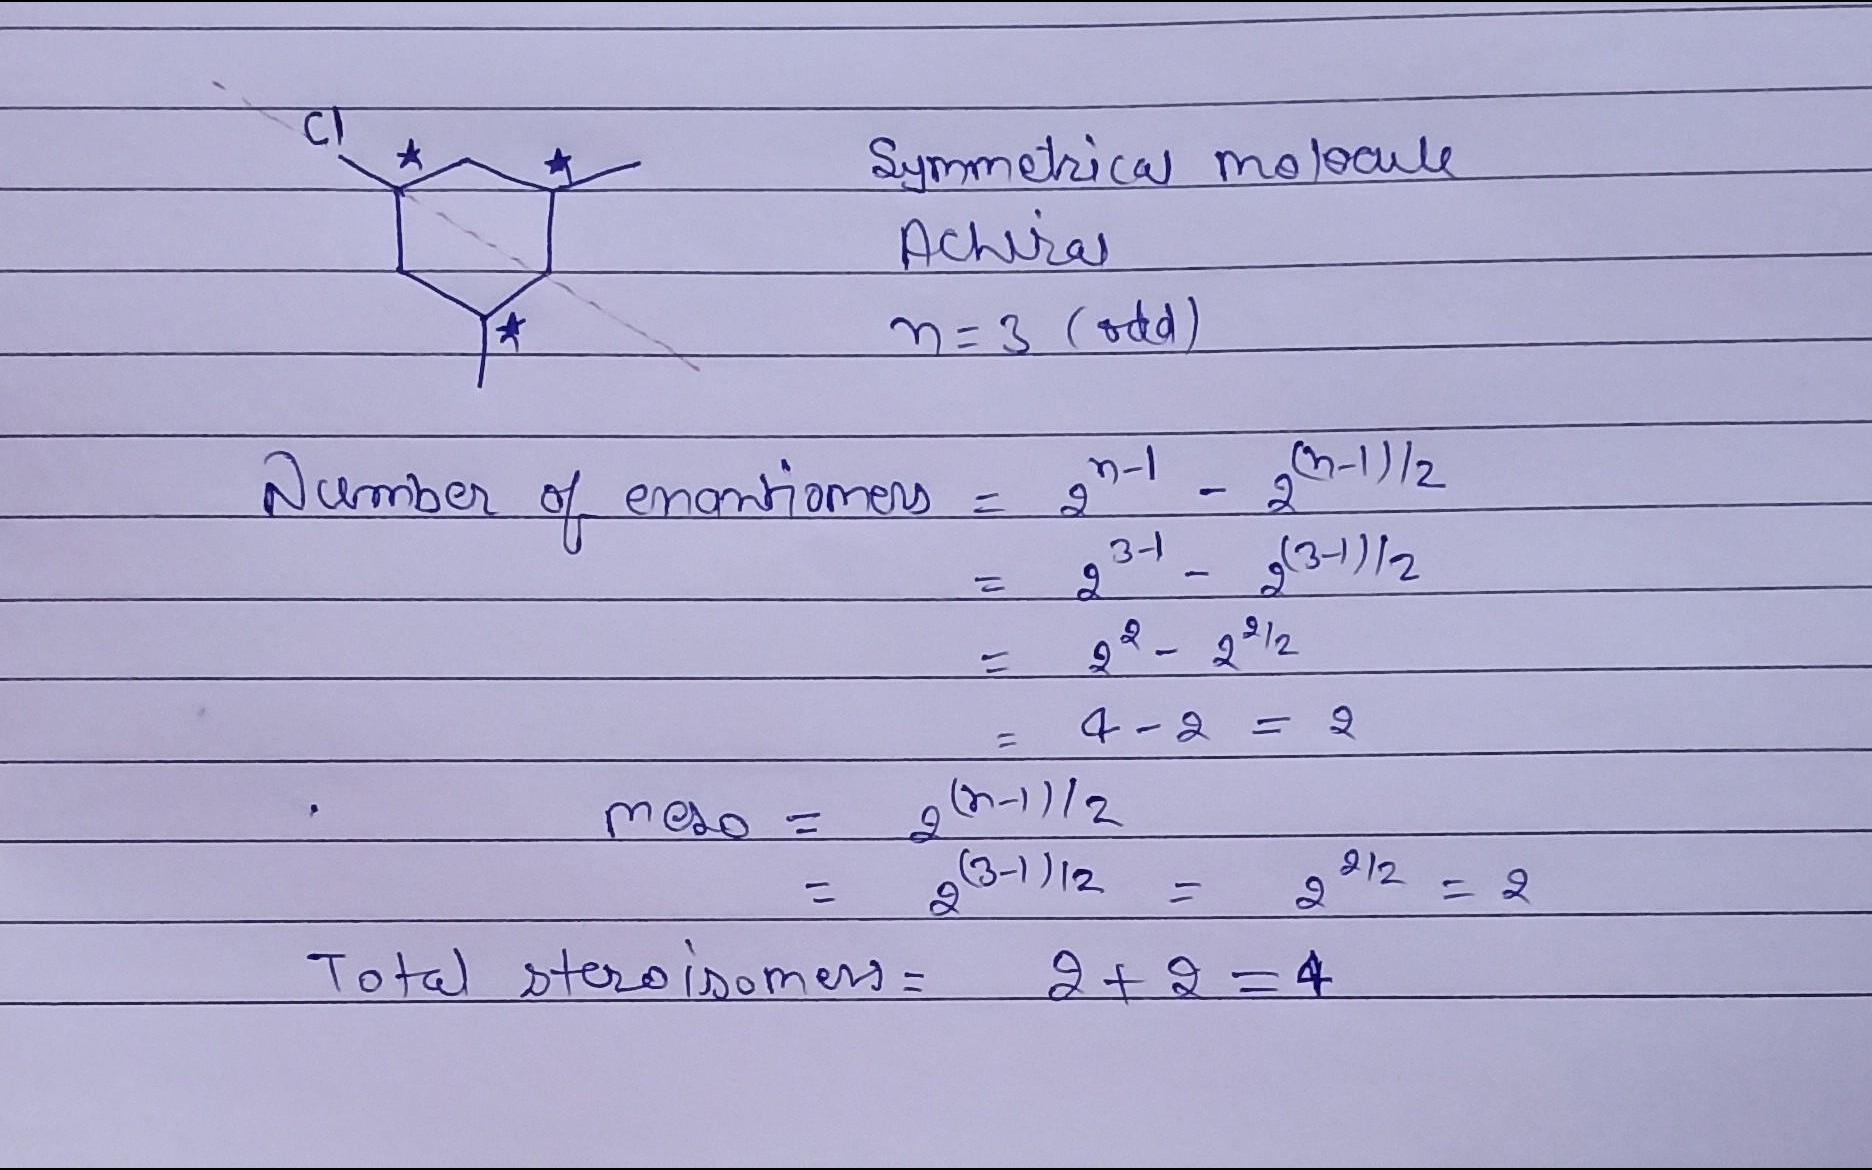 Cl
Symmetrical molecule
Achiral
n = 3 (odd)
Number of enantiomers = 2^(n-1) - 2^((n-1)/2)
= 2^(3-1) - 2^((3-1)/2)
= 2^2 - 2^(2/2)
= 4 - 2 = 2
meso = 2^((n-1)/2)
= 2^((3-1)/2) = 2^(2/2) = 2
Total steroisomers = 2 + 2 = 4